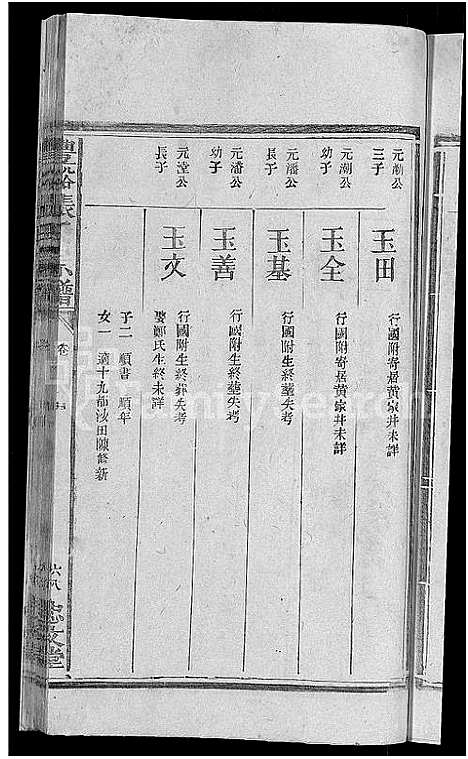 元潮公
三子
玉田
行國附寄居黄家井未詳
元潮公
幼子
玉全
行國附寄居黄家井未詳
元潘公
長子
玉基
行國附生終塟失考
元潘公
幼子
玉善
行國附生終塟失考
元瀅公
長子
玉文
行國附生終葬失考
娶鄭氏生終未詳
子二 順書 順年
女一 適十九都汝田陳
新
卷